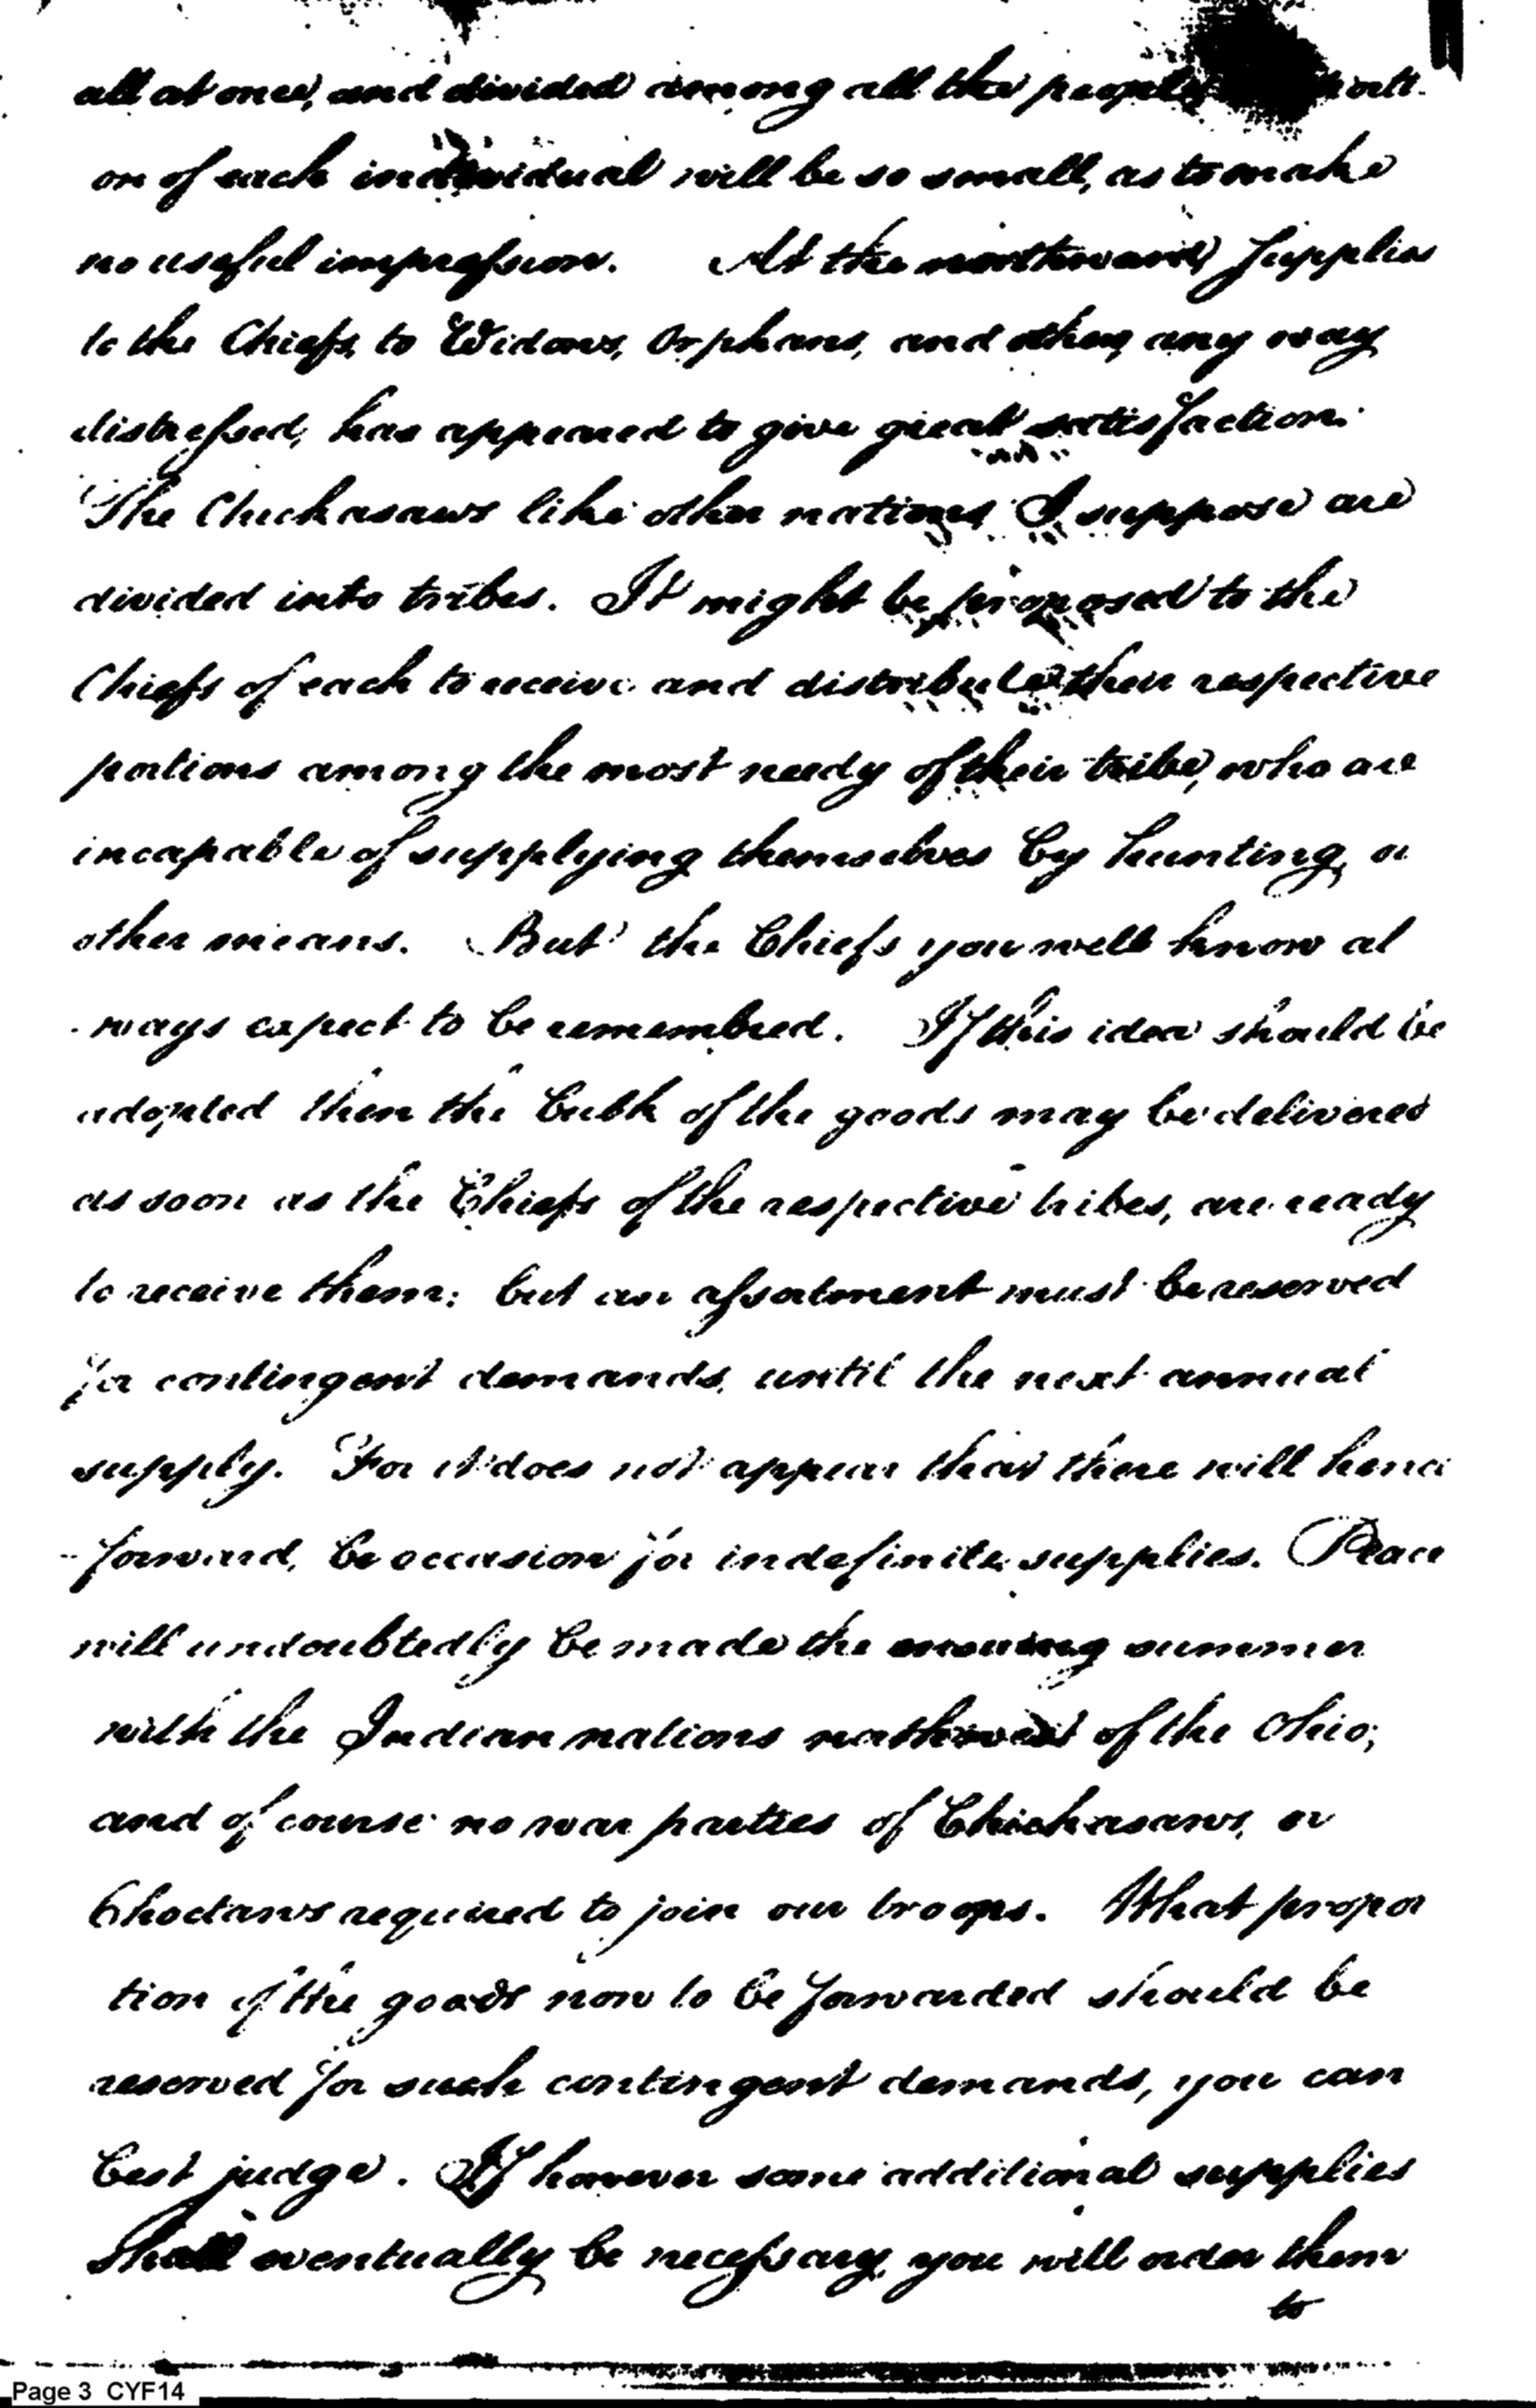 all at once, and divided among all the people
on of each individual will be so small, as to make
no useful impression. At the northward, supplies
to the Chiefs, to Widows, Orphans, and others any way
distressed, has appeared to give great satisfaction.
The Chickasaws like other nations I suppose are
divided into tribes. It might be proposed to the
Chiefs of each to receive and distribute their respective
portions among the most needy of their tribe, who are
incapable of supplying themselves by hunting, or
other means. But the Chiefs you well know al
ways expect to be remembred. If this idea should be
adopted then the bulk of the goods may be delivered
as soon as the Chiefs of the respective tribes, are ready
to receive them: but an assortment must be reserved
for contingent demands, until the next annual
supply. For it does not appear that there will hence
-forward, be occasion for indefinite supplies. Peace
will undoubtedly be made the ensuing summer
with the Indian nations northwest of the Ohio;
and of course no war parties of Chickasaws, or
Choctaws required to join our troops. What propor
tion of the goods now to be forwarded should be
reserved for such contingent demands, you can
best judge. If however some additional supplies
shall eventually be necessary, you will order them
to
Page 3 CYF14